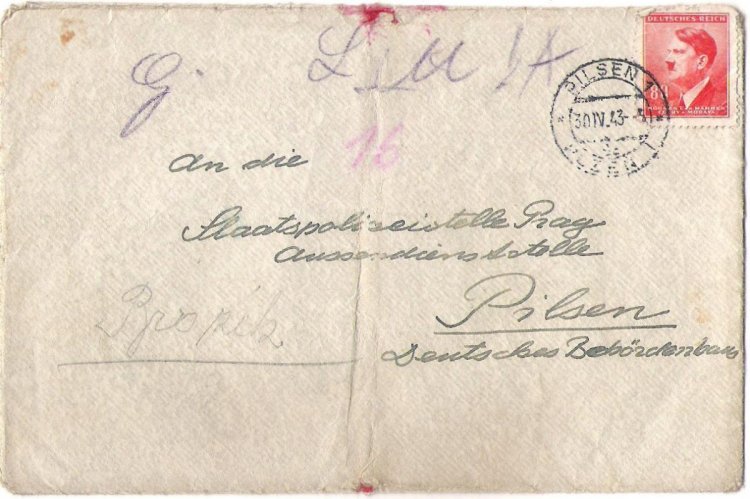 G. L
DEUTSCHES·REICH
80
BÖHMEN U. MÄHREN
ČECHY A MORAVA
PILSEN 1
30 IV. 43
PLZEŇ 1
16
An die
Staatspolizeistelle Prag
Aussendienststelle
Pilsen
Deutsches Behördenhaus